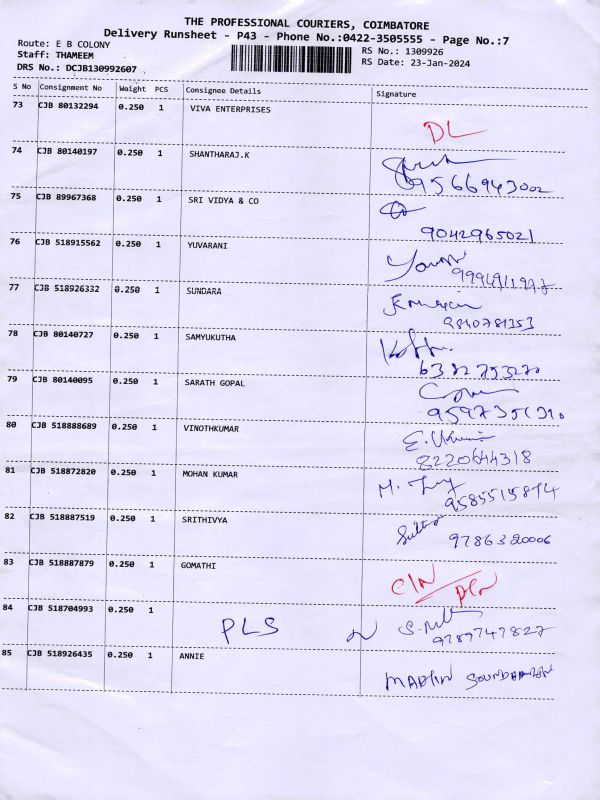 THE PROFESSIONAL COURIERS, COIMBATORE
Delivery Runsheet - P43 - Phone No.:0422-3505555 - Page No.:7
Route: E B COLONY
Staff: THAMEEM
DRS No.: DCJB130992607
RS No.: 1309926
RS Date: 23-Jan-2024
S No Consignment No Weight PCS Consignee Details Signature
73 CJB 80132294 0.250 1 VIVA ENTERPRISES
DL
74 CJB 80140197 0.250 1 SHANTHARAJ.K
9566943002
75 CJB 89967368 0.250 1 SRI VIDYA & CO
9042965021
76 CJB 518915562 0.250 1 YUVARANI
77 CJB 518926332 0.250 1 SUNDARA
9840781353
78 CJB 80140727 0.250 1 SAMYUKUTHA
79 CJB 80140095 0.250 1 SARATH GOPAL
80 CJB 518888689 0.250 1 VINOTHKUMAR
8220644318
81 CJB 518872820 0.250 1 MOHAN KUMAR
82 CJB 518887519 0.250 1 SRITHIVYA
9786320006
83 CJB 518887879 0.250 1 GOMATHI
84 CJB 518704993 0.250 1
PLS
9789747827
85 CJB 518926435 0.250 1 ANNIE
MARTIN